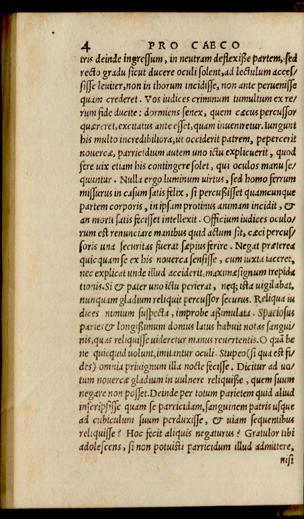 4 PRO CAECO
tris deinde ingressum, in neutram deflexiße partem, sed
recto gradu sicut ducere oculi solent, ad lectulum acces/
sisse leuiter, non in thorum incidisse, non ante peruenisse
quàm crederet. Vos iudices criminum tumultum ex re/
rum fide ducite: dormiens senex, quem cæcus percussor
quæreret, excitatus ante esset, quàm inuenиretur. Iungunt
his multo incredibiliora, ut occiderit patrem, pepercerit
nouercæ, parricidium autem uno ictu explicuerit, quod
fere uix etiam his contingere solet, qui oculos manu se/
quuntur. Nulla ergo luminum uirtus, sed homo ferrum
missurus in casum satis felix, si percußisset quamcunque
partem corporis, in ipsam protinus animam incidit, &
an mori satis fecisset intellexit. Officium iudices oculo/
rum est renunciare manibus quid actum sit, cæci percus/
soris una securitas fuerat sæpius ferire. Negat præterea
quicquam se ex his nouerca sensisse, cum iuxta iaceret,
nec explicat unde illud acciderit, maximæ signum trepida
tionis. Si & pater uno ictu perierat, neq; ista uigilabat,
nunquam gladium reliquit percussor securus. Reliqua iu
dices nimium suspecta, improbe aßimulata. Spaciosus
paries & longißimum domus latus habuit notas sangui/
nis, quas reliquisse uideretur manus reuertentis. O quā be
ne quicquid uolunt, imitantur oculi. Stupeo (si qua est fi/
des) omnia priuignum illa nocte fecisse. Dicitur ad uo/
tum nouercæ gladium in uulnere reliquisse, quem suum
negare non posset. Deinde per totum parietem quid aliud
inscripsisse quàm se parricidam, sanguinem patris usque
ad cubiculum suum perduxisse, & uiam sequentibus
reliquisse? Hoc fecit aliquis negaturus? Gratulor tibi
adolescens, si non potuisti parricidium illud admittere,
nisi